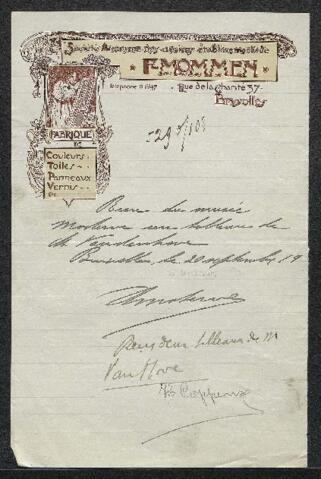 Société Anonyme des anciens établissements de
F. MOMMEN
Téléphone Rue de la Charité 37.
Bruxelles
FABRIQUE
DE
Couleurs.
Toiles.
Panneaux
Vernis.
du musée
moderne un tableau de
M. Vandenhove
Bruxelles, le 20 septembre 19
Reçu deux tableaux de M
Van Hove
Coppens